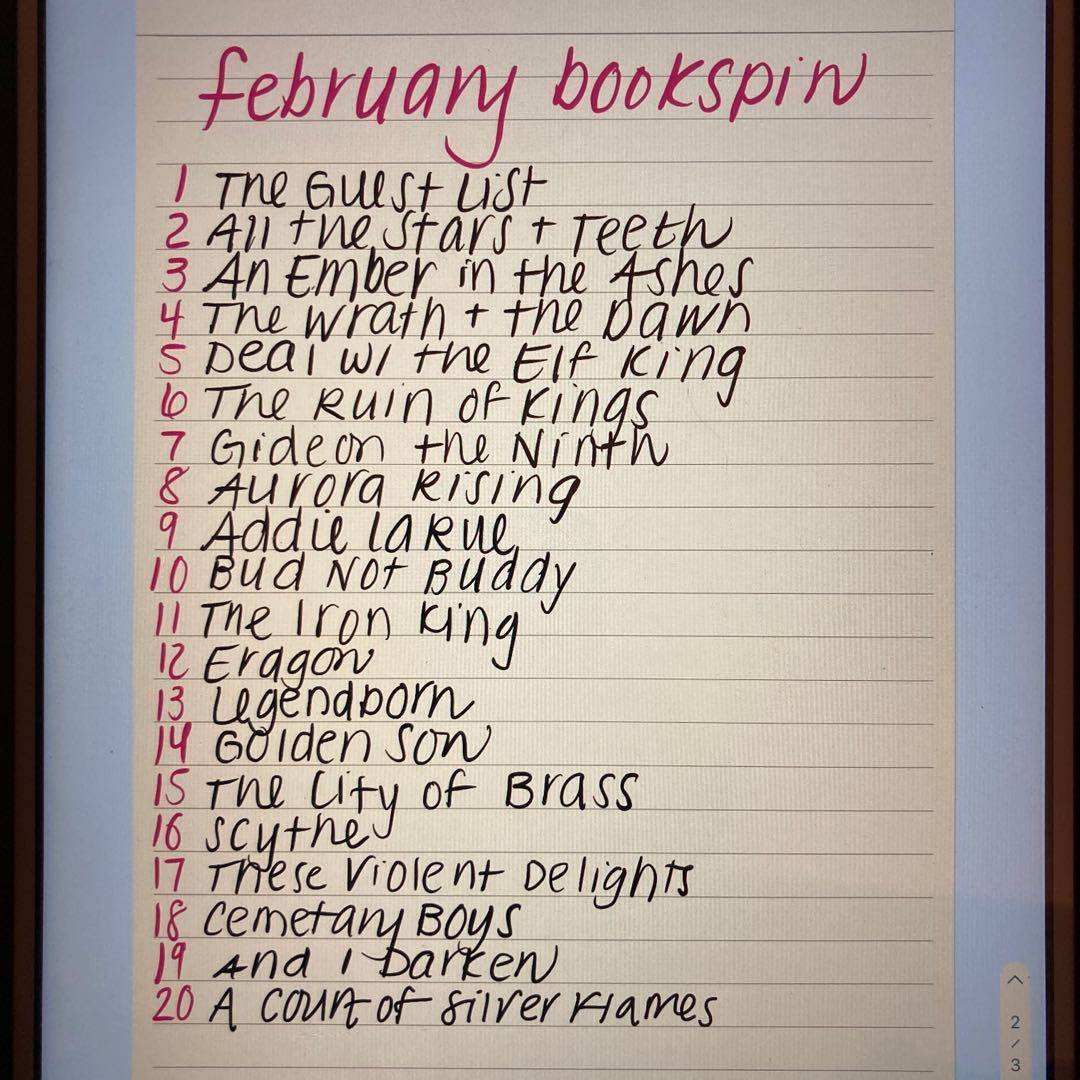 february bookspin
1 The Guest List
2 All the Stars + Teeth
3 An Ember in the Ashes
4 The Wrath + the Dawn
5 Deal w/ the Elf King
6 The Ruin of Kings
7 Gideon the Ninth
8 Aurora Rising
9 Addie LaRue
10 Bud Not Buddy
11 The Iron King
12 Eragon
13 Legendborn
14 Golden Son
15 The City of Brass
16 Scythe
17 These Violent Delights
18 Cemetary Boys
19 And I Darken
20 A Court of Silver Flames
2
/
3